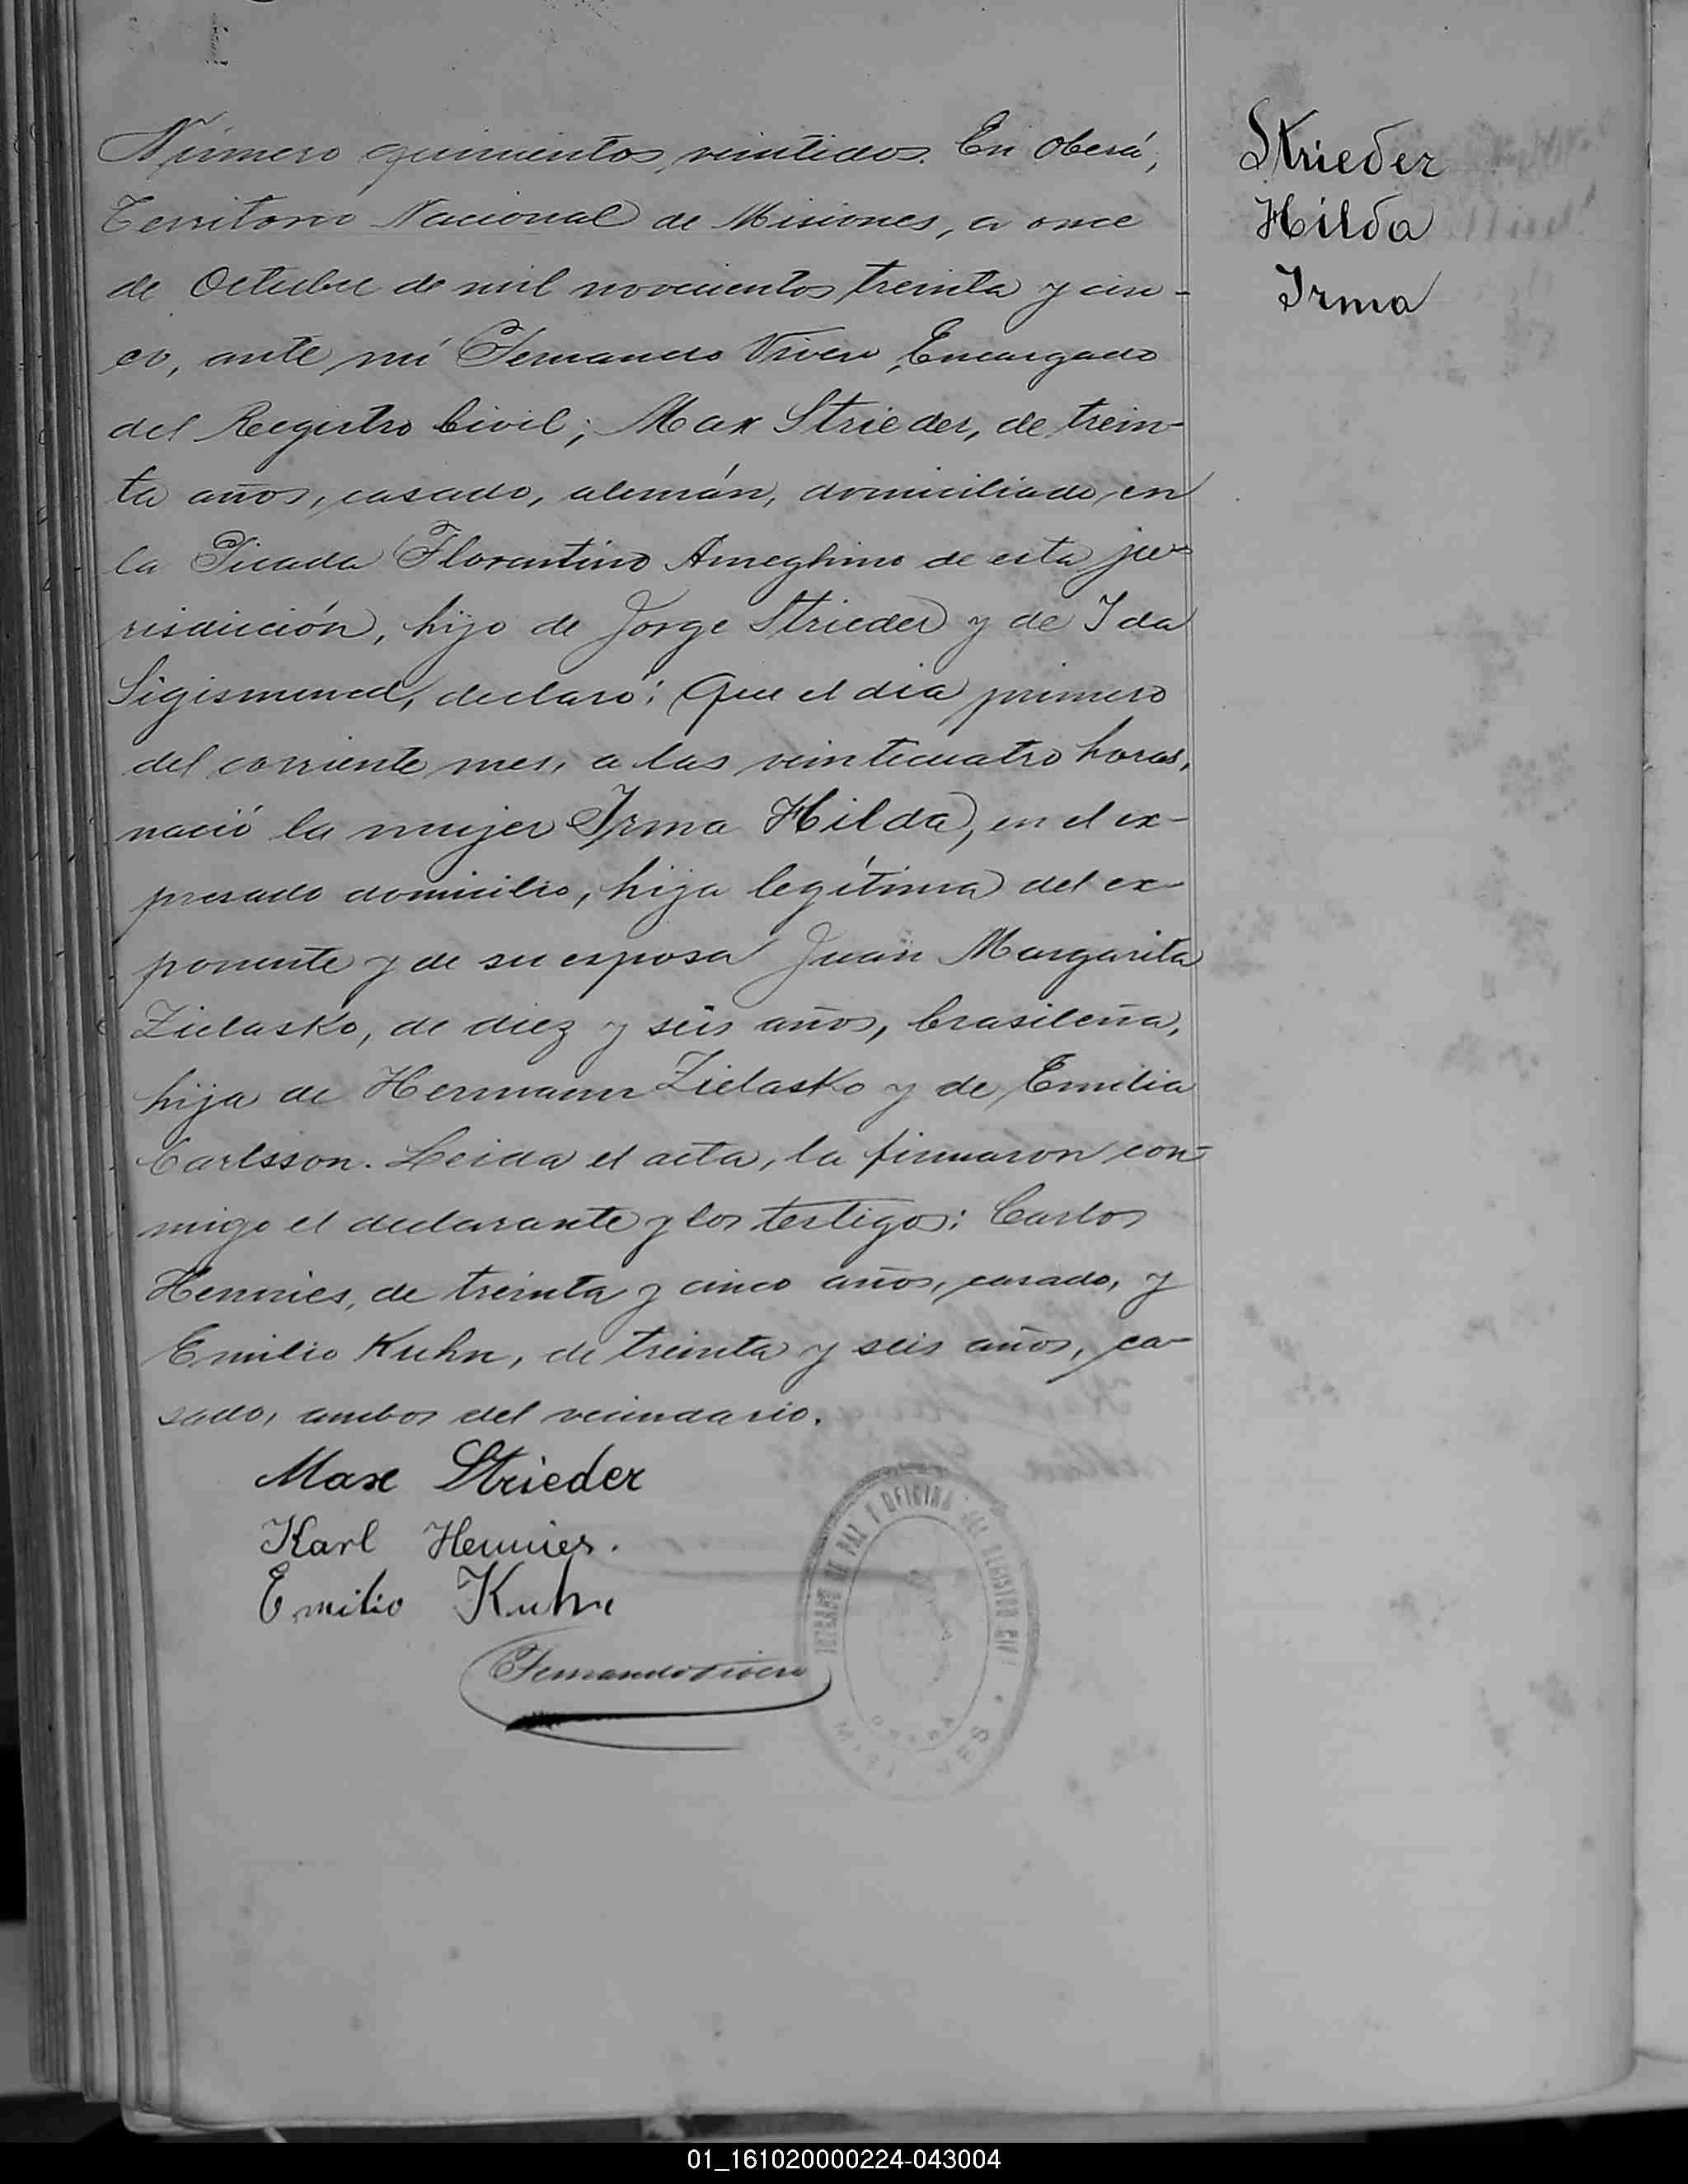 Número quinientos veintidos. En Oberá,
Territorio Nacional de Misiones, a once
de Octubre de mil novecientos treinta y cin-
co, ante mí Fernando Vivero, Encargado
del Registro Civil; Max Strieder, de trein-
ta años, casado, alemán, domiciliado en
la Picada Florentino Ameghino de esta ju-
risdicción, hijo de Jorge Strieder y de Ida
Sigismund, declaró: Que el dia primero
del corriente mes, a las veinticuatro horas,
nació la mujer Irma Hilda, en el ex-
presado domicilio, hija legítima del ex-
ponente y de su esposa Juan Margarita
Zielasko, de diez y seis años, brasileña,
hija de Hermann Zielasko y de Emilia
Carlsson. Leida el acta, la firmaron con-
migo el declarante y los testigos: Carlos
Hennies, de treinta y cinco años, casado, y
Emilio Kuhn, de treinta y seis años, ca-
sado, ambos del vecindario.
Max Strieder
Karl Hennies.
Emilio Kuhn
Fernando Vivero
Strieder
Hilda
Irma
JUZGADO DE PAZ Y OFICINA DEL REGISTRO CIV
OBERA
MISIONES
01_161020000224-043004